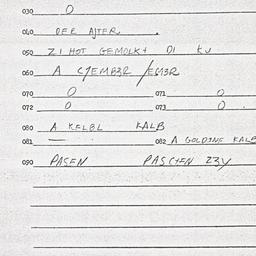 030 O
040 DER AJTER.
050 ZI HOT GEMOLK+ DI KU
060 A CJEMB3R /EMJ3R
070 O 071 O
072 O 073 O
080 A KELBL KALB
081 — 082 A GOLDJNE KALB
090 PASEN PASCHEN 23V